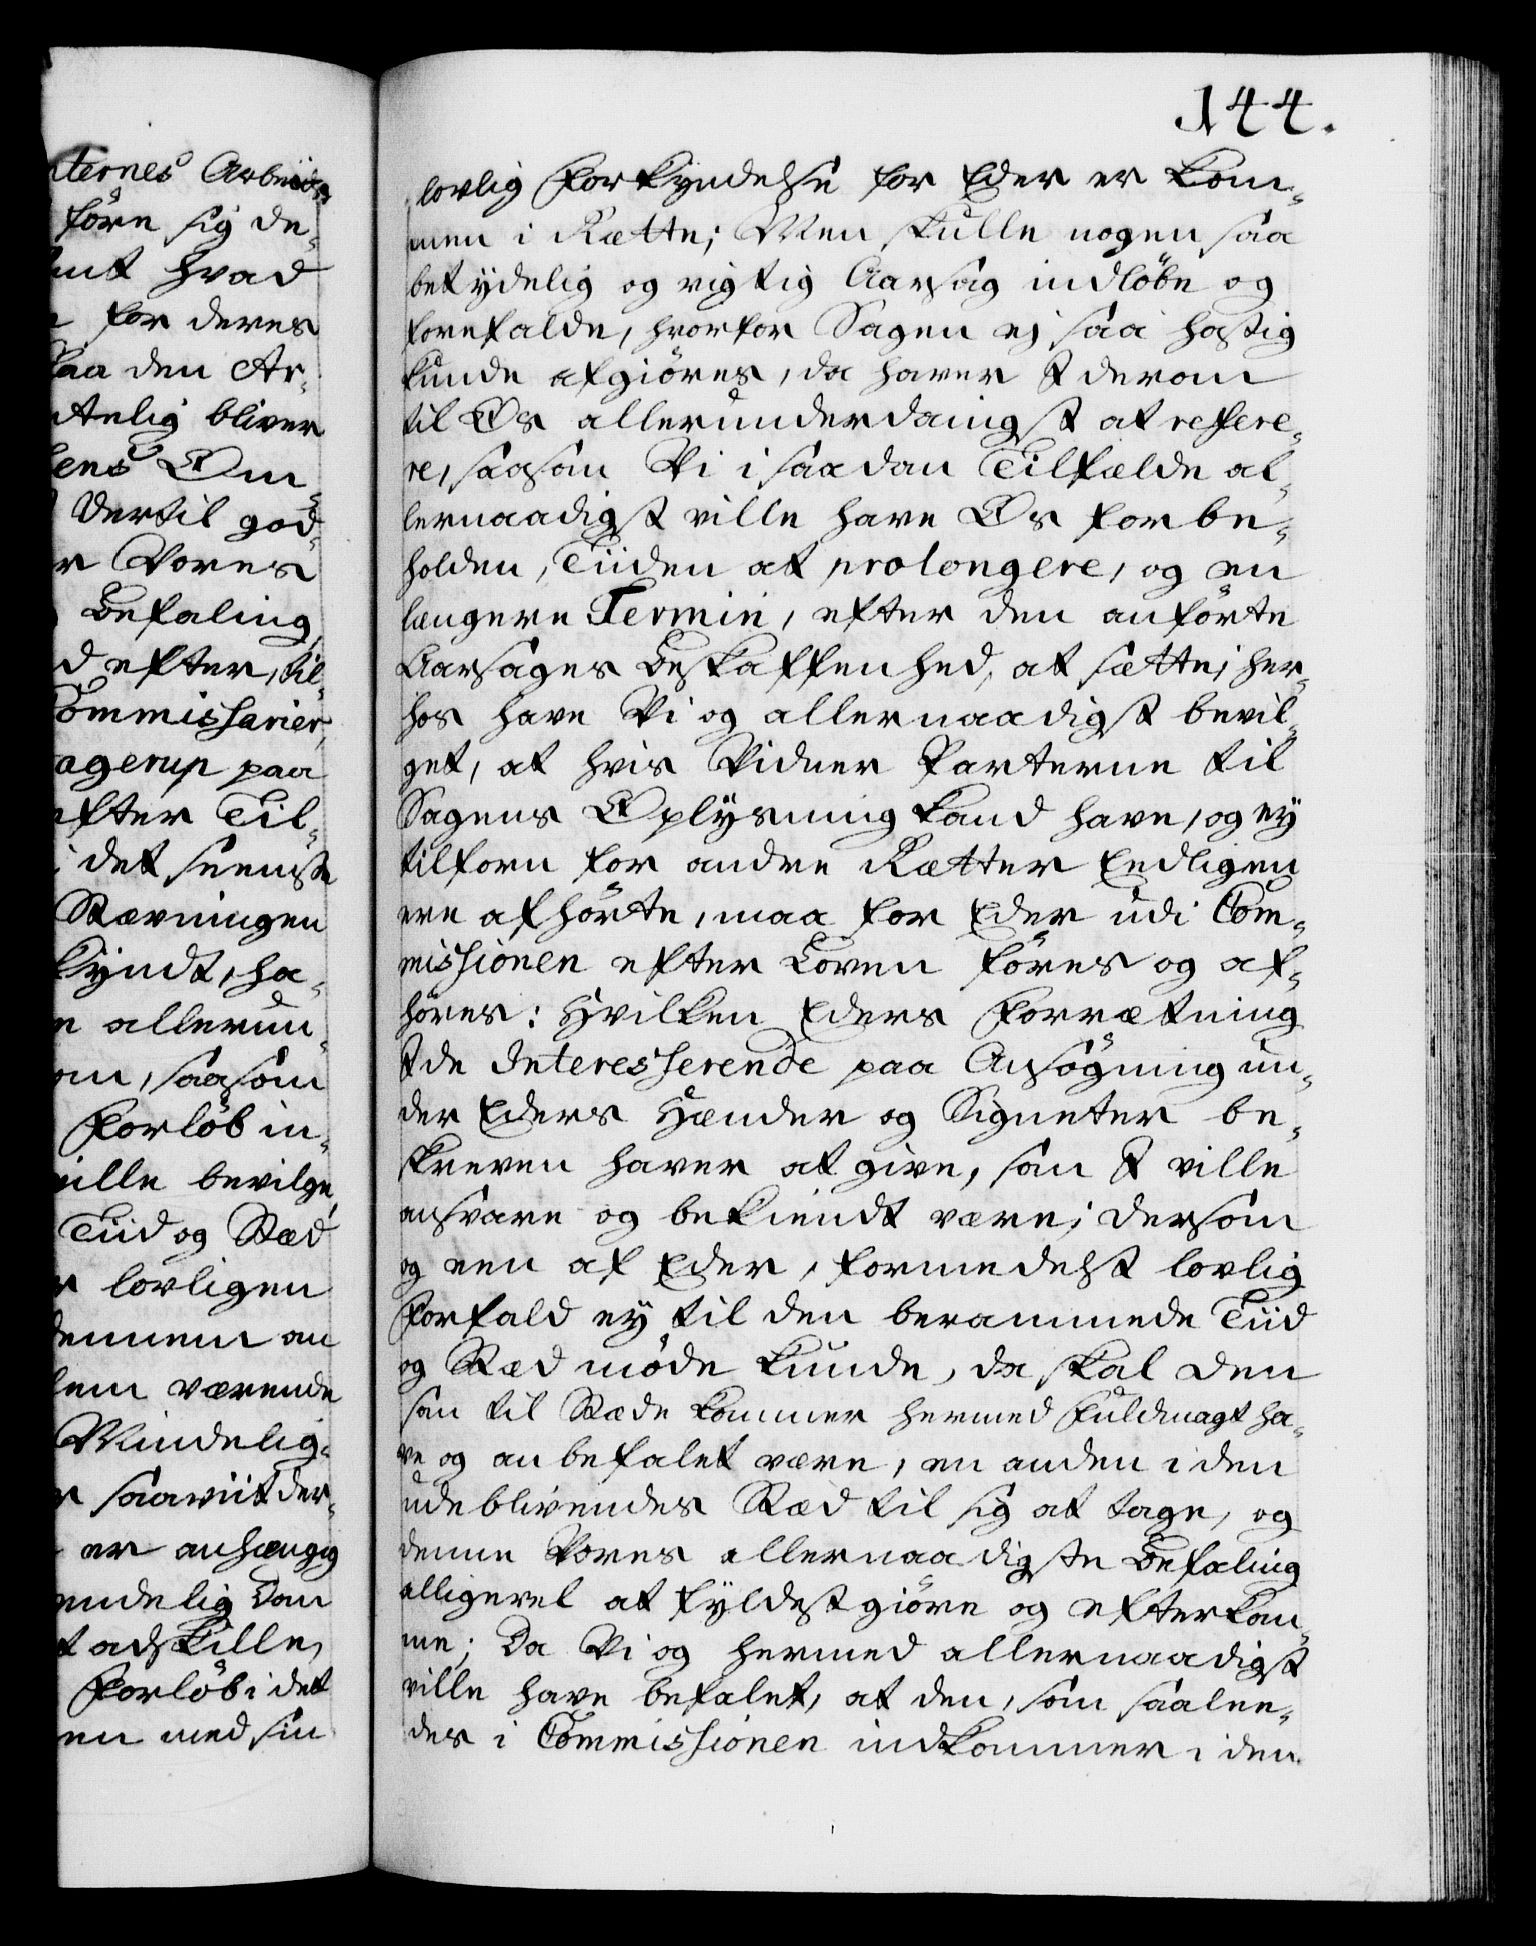 144.
ternes Arbeids
före sig de-
hvad
for deres
paa den Ar-
bliver
lens Om
dertil god-
Vores
Befaling,
efter, til-
Commissarier
agerup paa
efter Til-
i det seeniste
Stævningen
kyndt, ha-
allerun-
saasom
Forlöb in-
ville bevilge,
Tiid og Stæd
lovligen
dennem an
værende
Mindelig-
saaviit der-
er anhængig
endelig Dom
adskille,
Forlöb i det
med sin
lovlig Forkyndelse for Eder er kom-
men i Rætte; Men skulle nogen saa
betydelig og vigtig Aarsag indlöbe og
forefalde, hvorfor Sagen ej saa hastig
kunde afgiöres, da haver I derom
til Os allerunderdanigst at refere-
re, saasom Vi i saadan Tilfælde al-
lernaadigst ville have Os forbe-
holden, Tiiden at prolongere, og en
længere Termin, efter den anförte
Aarsages Beskaffenhed, at sætte; her-
hos have Vi og allernaadigst bevil-
get, at hvis Vidner Parterne til
Sagens Oplysning kand have, og ey
tilforn for andre Rætter Eedligen
ere afhörte, maa for Eder udi Com-
missionen efter Loven föres og af-
höres: Hvilken Eders Forrætning
I de Interesserende paa Ansögning un-
der Eders Hænder og Signeter be-
skreven haver at give, som I ville
ansvare og bekiendt være; dersom
og een af Eder, formedelst lovlig
Forfald ey til den berammede Tiid
og Stæd möde kunde, da skal den
som til Stæde kommer hermed Fuldmagt ha-
ve og anbefalet være, en anden i den
udeblivendes Stæd til sig at tage, og
denne Vores allernaadigste Befaling
alligevel at fyldestgiöre og efterkom-
me; Da Vi og hermed allernaadigst
ville have befalet, at den, som saalee-
des i Commissionen indkommer i den